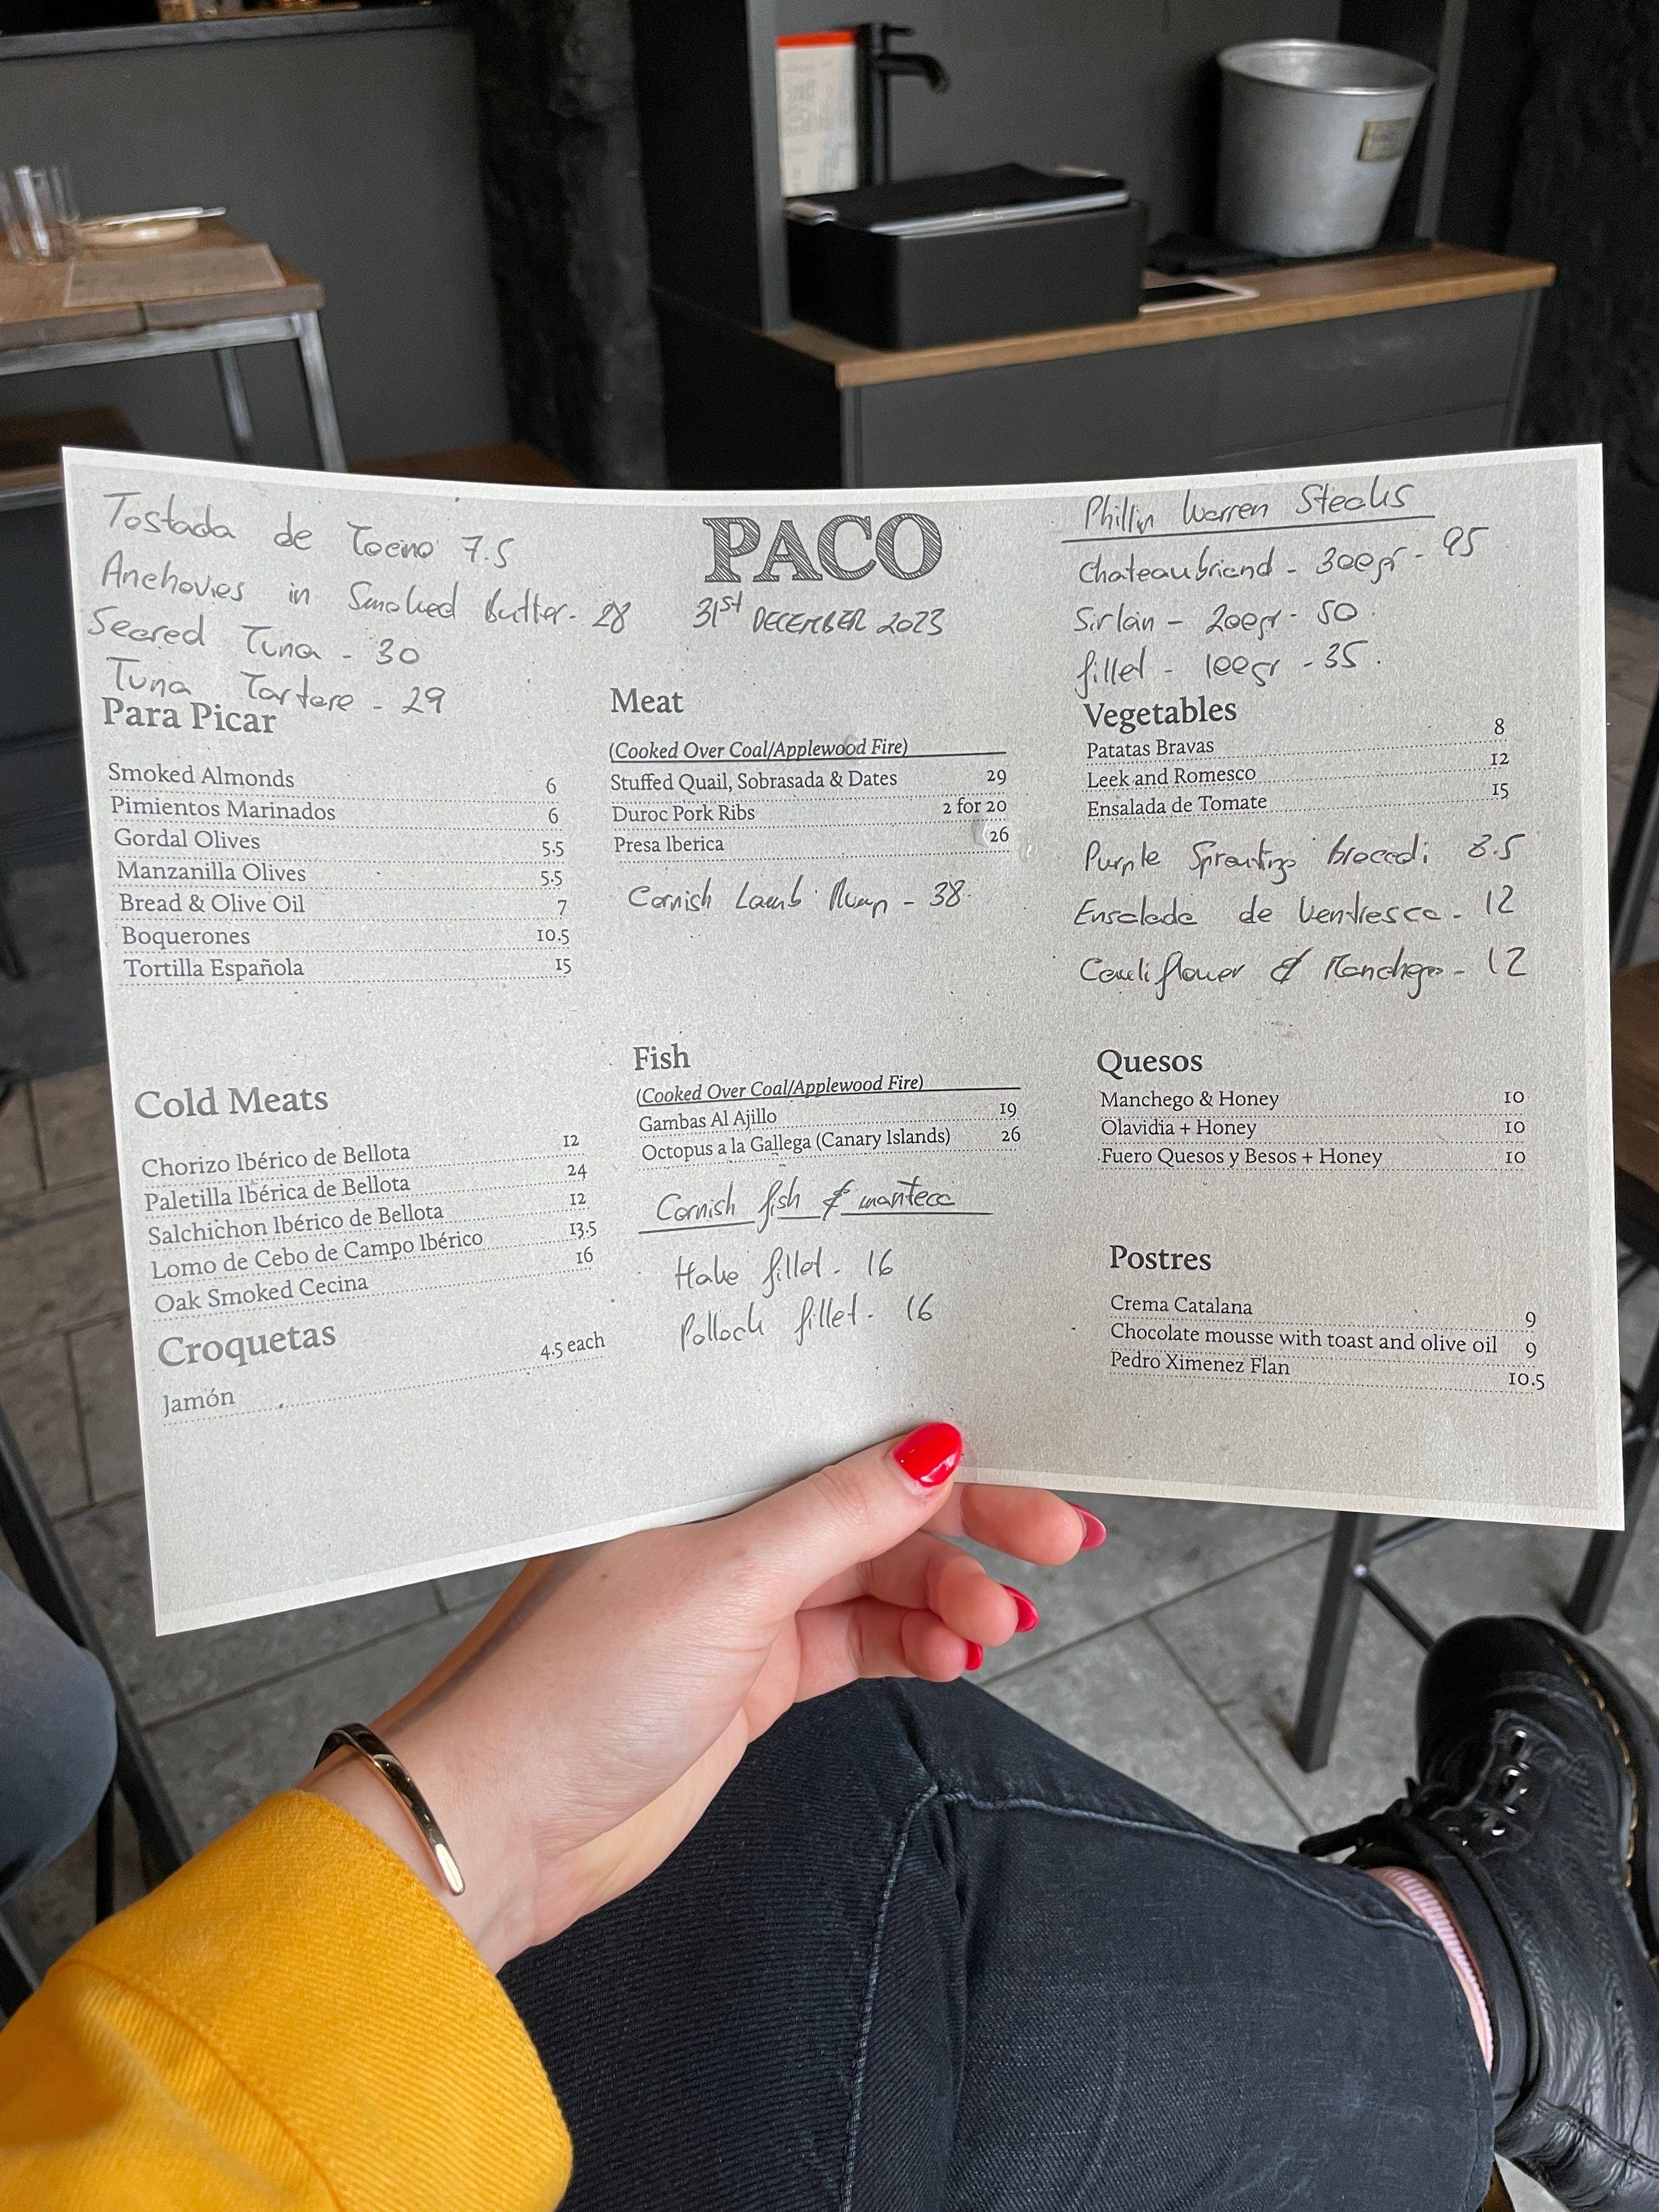 Tostada de Tocino 7.5
Anchovies in Smoked Butter - 28
Seared Tuna - 30
Tuna Tartare - 29
PACO
31st DECEMBER 2023
Phillip Warren Steaks
Chateaubriand - 300gr - 95
Sirloin - 200gr - 50
fillet - 100gr - 35.
Para Picar
Smoked Almonds 6
Pimientos Marinados 6
Gordal Olives 5.5
Manzanilla Olives 5.5
Bread & Olive Oil 7
Boquerones 10.5
Tortilla Española 15
Cold Meats
Chorizo Ibérico de Bellota 12
Paletilla Ibérica de Bellota 24
Salchichon Ibérico de Bellota 12
Lomo de Cebo de Campo Ibérico 13.5
Oak Smoked Cecina 16
Croquetas
4.5 each
Jamón
Meat
(Cooked Over Coal/Applewood Fire)
Stuffed Quail, Sobrasada & Dates 29
Duroc Pork Ribs 2 for 20
Presa Iberica 26
Cornish Lamb Rump - 38
Fish
(Cooked Over Coal/Applewood Fire)
Gambas Al Ajillo 19
Octopus a la Gallega (Canary Islands) 26
Cornish fish & manteca
Hake fillet - 16
Pollock fillet - 16
Vegetables
Patatas Bravas 8
Leek and Romesco 12
Ensalada de Tomate 15
Purple Sprouting brocoli 8.5
Ensalada de Ventresca - 12
Cauliflower & Manchego - 12
Quesos
Manchego & Honey 10
Olavidia + Honey 10
Fuero Quesos y Besos + Honey 10
Postres
Crema Catalana 9
Chocolate mousse with toast and olive oil 9
Pedro Ximenez Flan 10.5